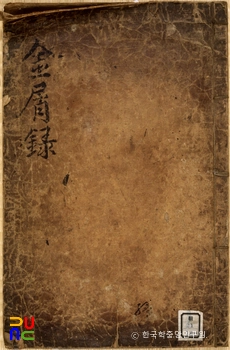 金屑録
© 한국학중앙연구원